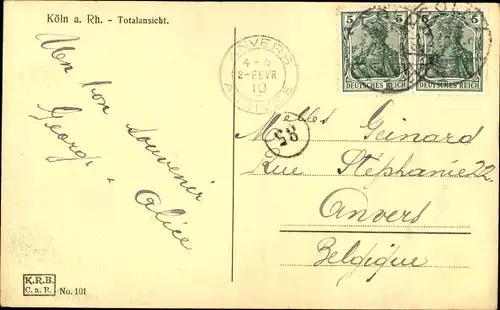 Köln a. Rh. - Totalansicht.
Un bon souvenir
Georges
Alice
ANVERS
4-5
2-FEVR
10
ARRIVEE
5 5
DEUTSCHES REICH
5 5
DEUTSCHES REICH
Melles Geinard
Rue Stéphanie 22
Anvers
Belgique
K.R.B.
C.a.R.
No. 101